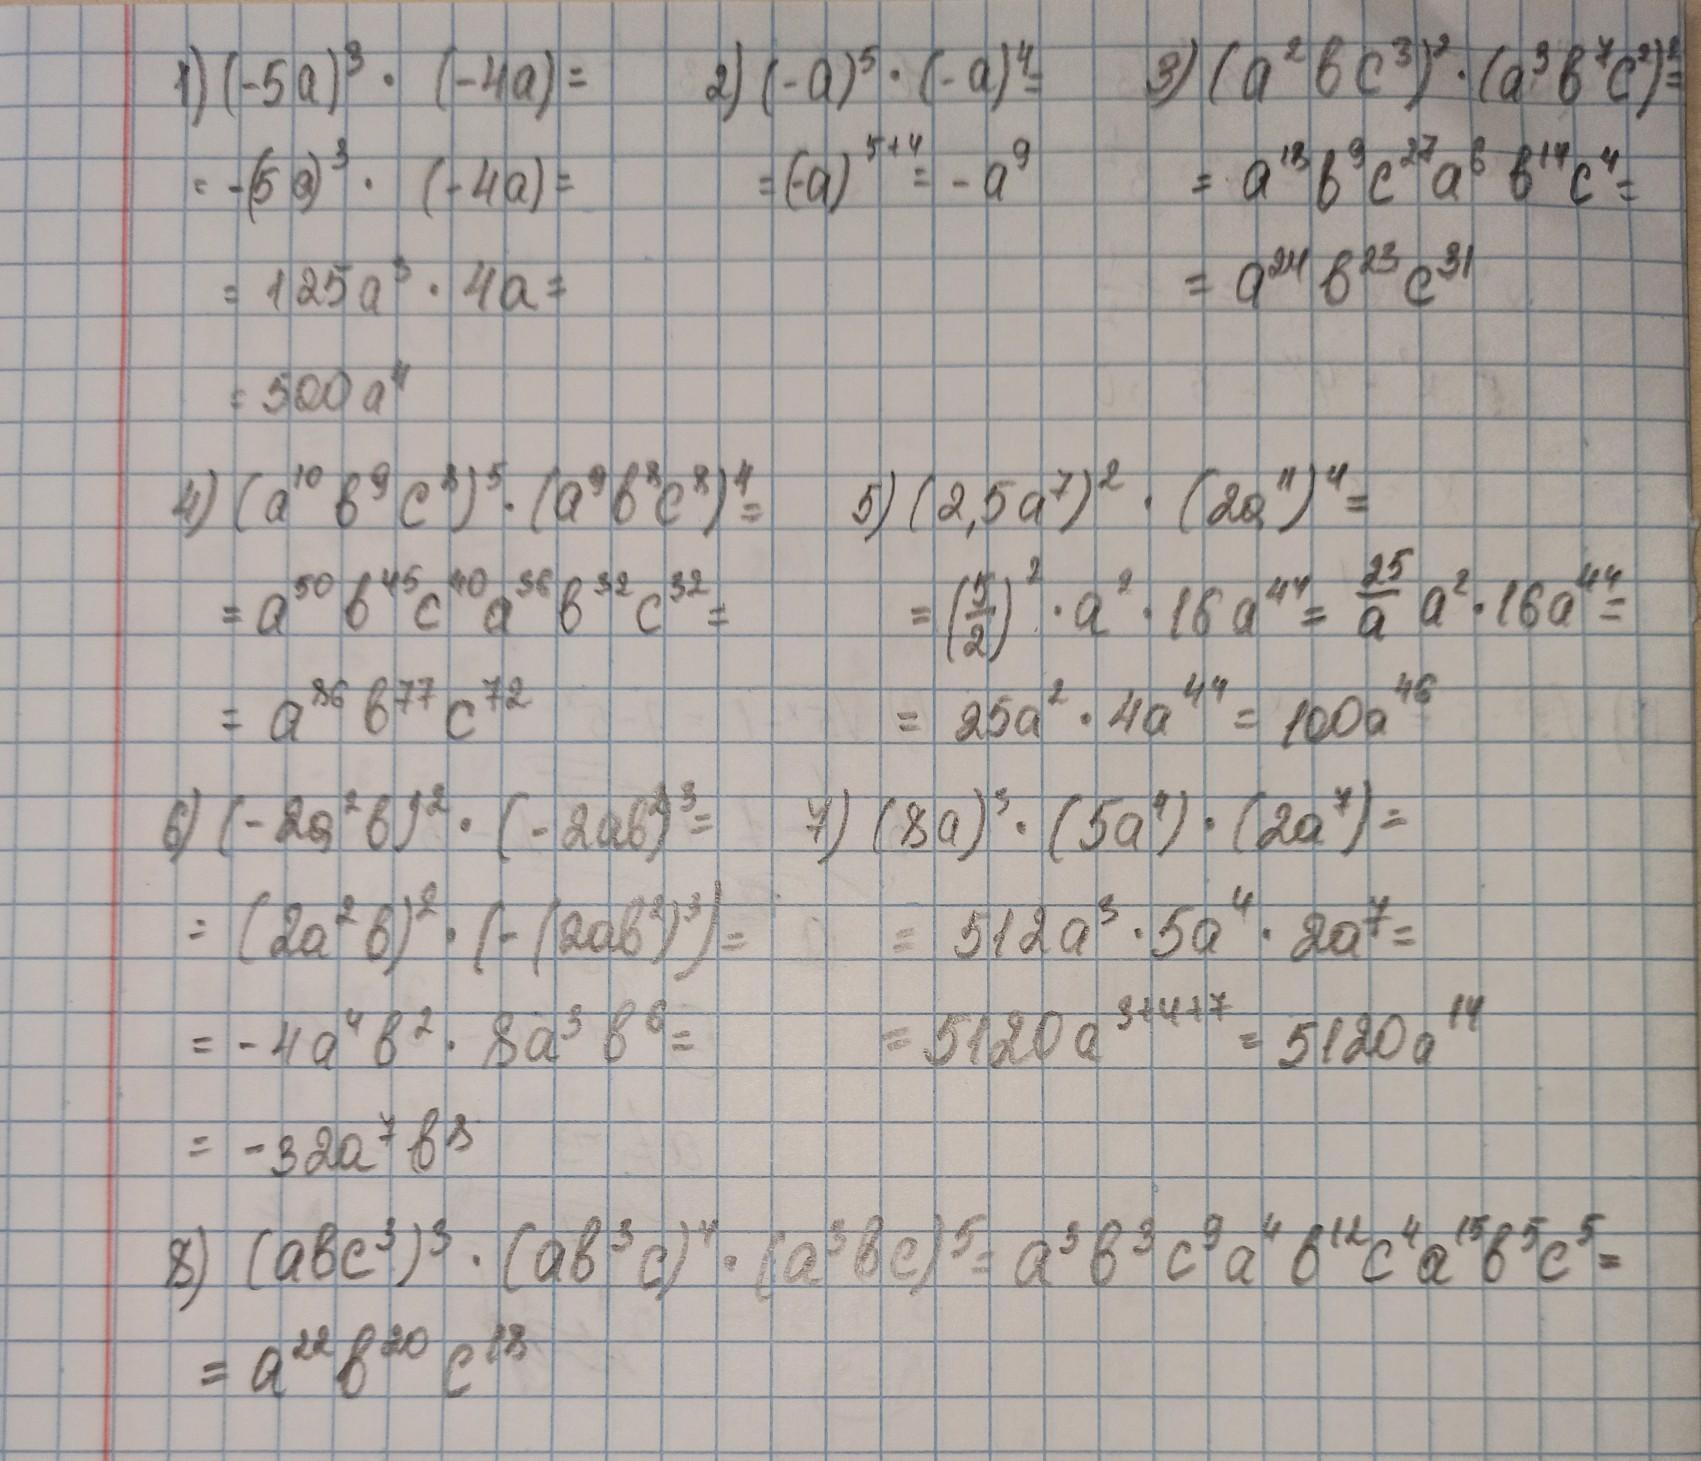 1) (-5a)³ · (-4a) =
= -(5a)³ · (-4a) =
= 125a³ · 4a =
= 500a⁴
2) (-a)⁵ · (-a)⁴ =
= (-a)⁵⁺⁴ = -a⁹
3) (a²bc³)² · (a³b⁷c²)² =
= a¹⁸b⁹c²⁷a⁶b¹⁴c⁴ =
= a²⁴b²³c³¹
4) (a¹⁰b⁹c⁸)⁵ · (a⁹b⁸c⁸)⁴ =
= a⁵⁰b⁴⁵c⁴⁰a³⁶b³²c³² =
= a⁸⁶b⁷⁷c⁷²
5) (2,5a⁷)² · (2a¹¹)⁴ =
= (5/2)² · a² · 16a⁴⁴ = 25/a a² · 16a⁴⁴ =
= 25a² · 4a⁴⁴ = 100a⁴⁶
6) (-2a²b)² · (-2ab²)³ =
= (2a²b)² · (-(2ab²)³) =
= -4a⁴b² · 8a³b⁶ =
= -32a⁷b⁸
7) (8a)³ · (5a⁴) · (2a⁷) =
= 512a³ · 5a⁴ · 2a⁷ =
= 5120a³⁺⁴⁺⁷ = 5120a¹⁴
8) (abc³)³ · (ab³c)⁴ · (a³bc)⁵ = a³b³c⁹a⁴b¹²c⁴a¹⁵b⁵c⁵ =
= a²²b²⁰c¹⁸